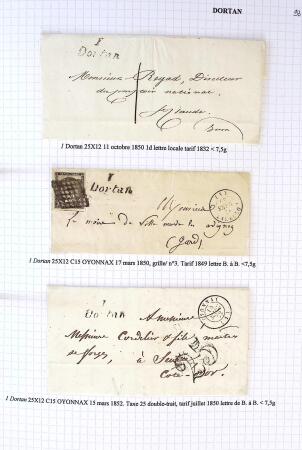 DORTAN
1
Dortan
Monsieur Royad, Directeur
du comptoir national
St Claude
Jura
1 Dortan 25X12 11 octobre 1850 1d lettre locale tarif 1832 < 7,5g
1
Dortan
Monsieur
Le maire de
(Gard)
1 Dortan 25X12 C15 OYONNAX 17 mars 1850, grille/ n°3. Tarif 1849 lettre B. à B. <7,5g
1
Dortan
A messieurs
Messieurs Cordelier et fils maitres
de forges,
à
Côte-d'Or
25
1 Dortan 25X12 C15 OYONNAX 15 mars 1852. Taxe 25 double-trait, tarif juillet 1850 lettre de B. à B. < 7,5g